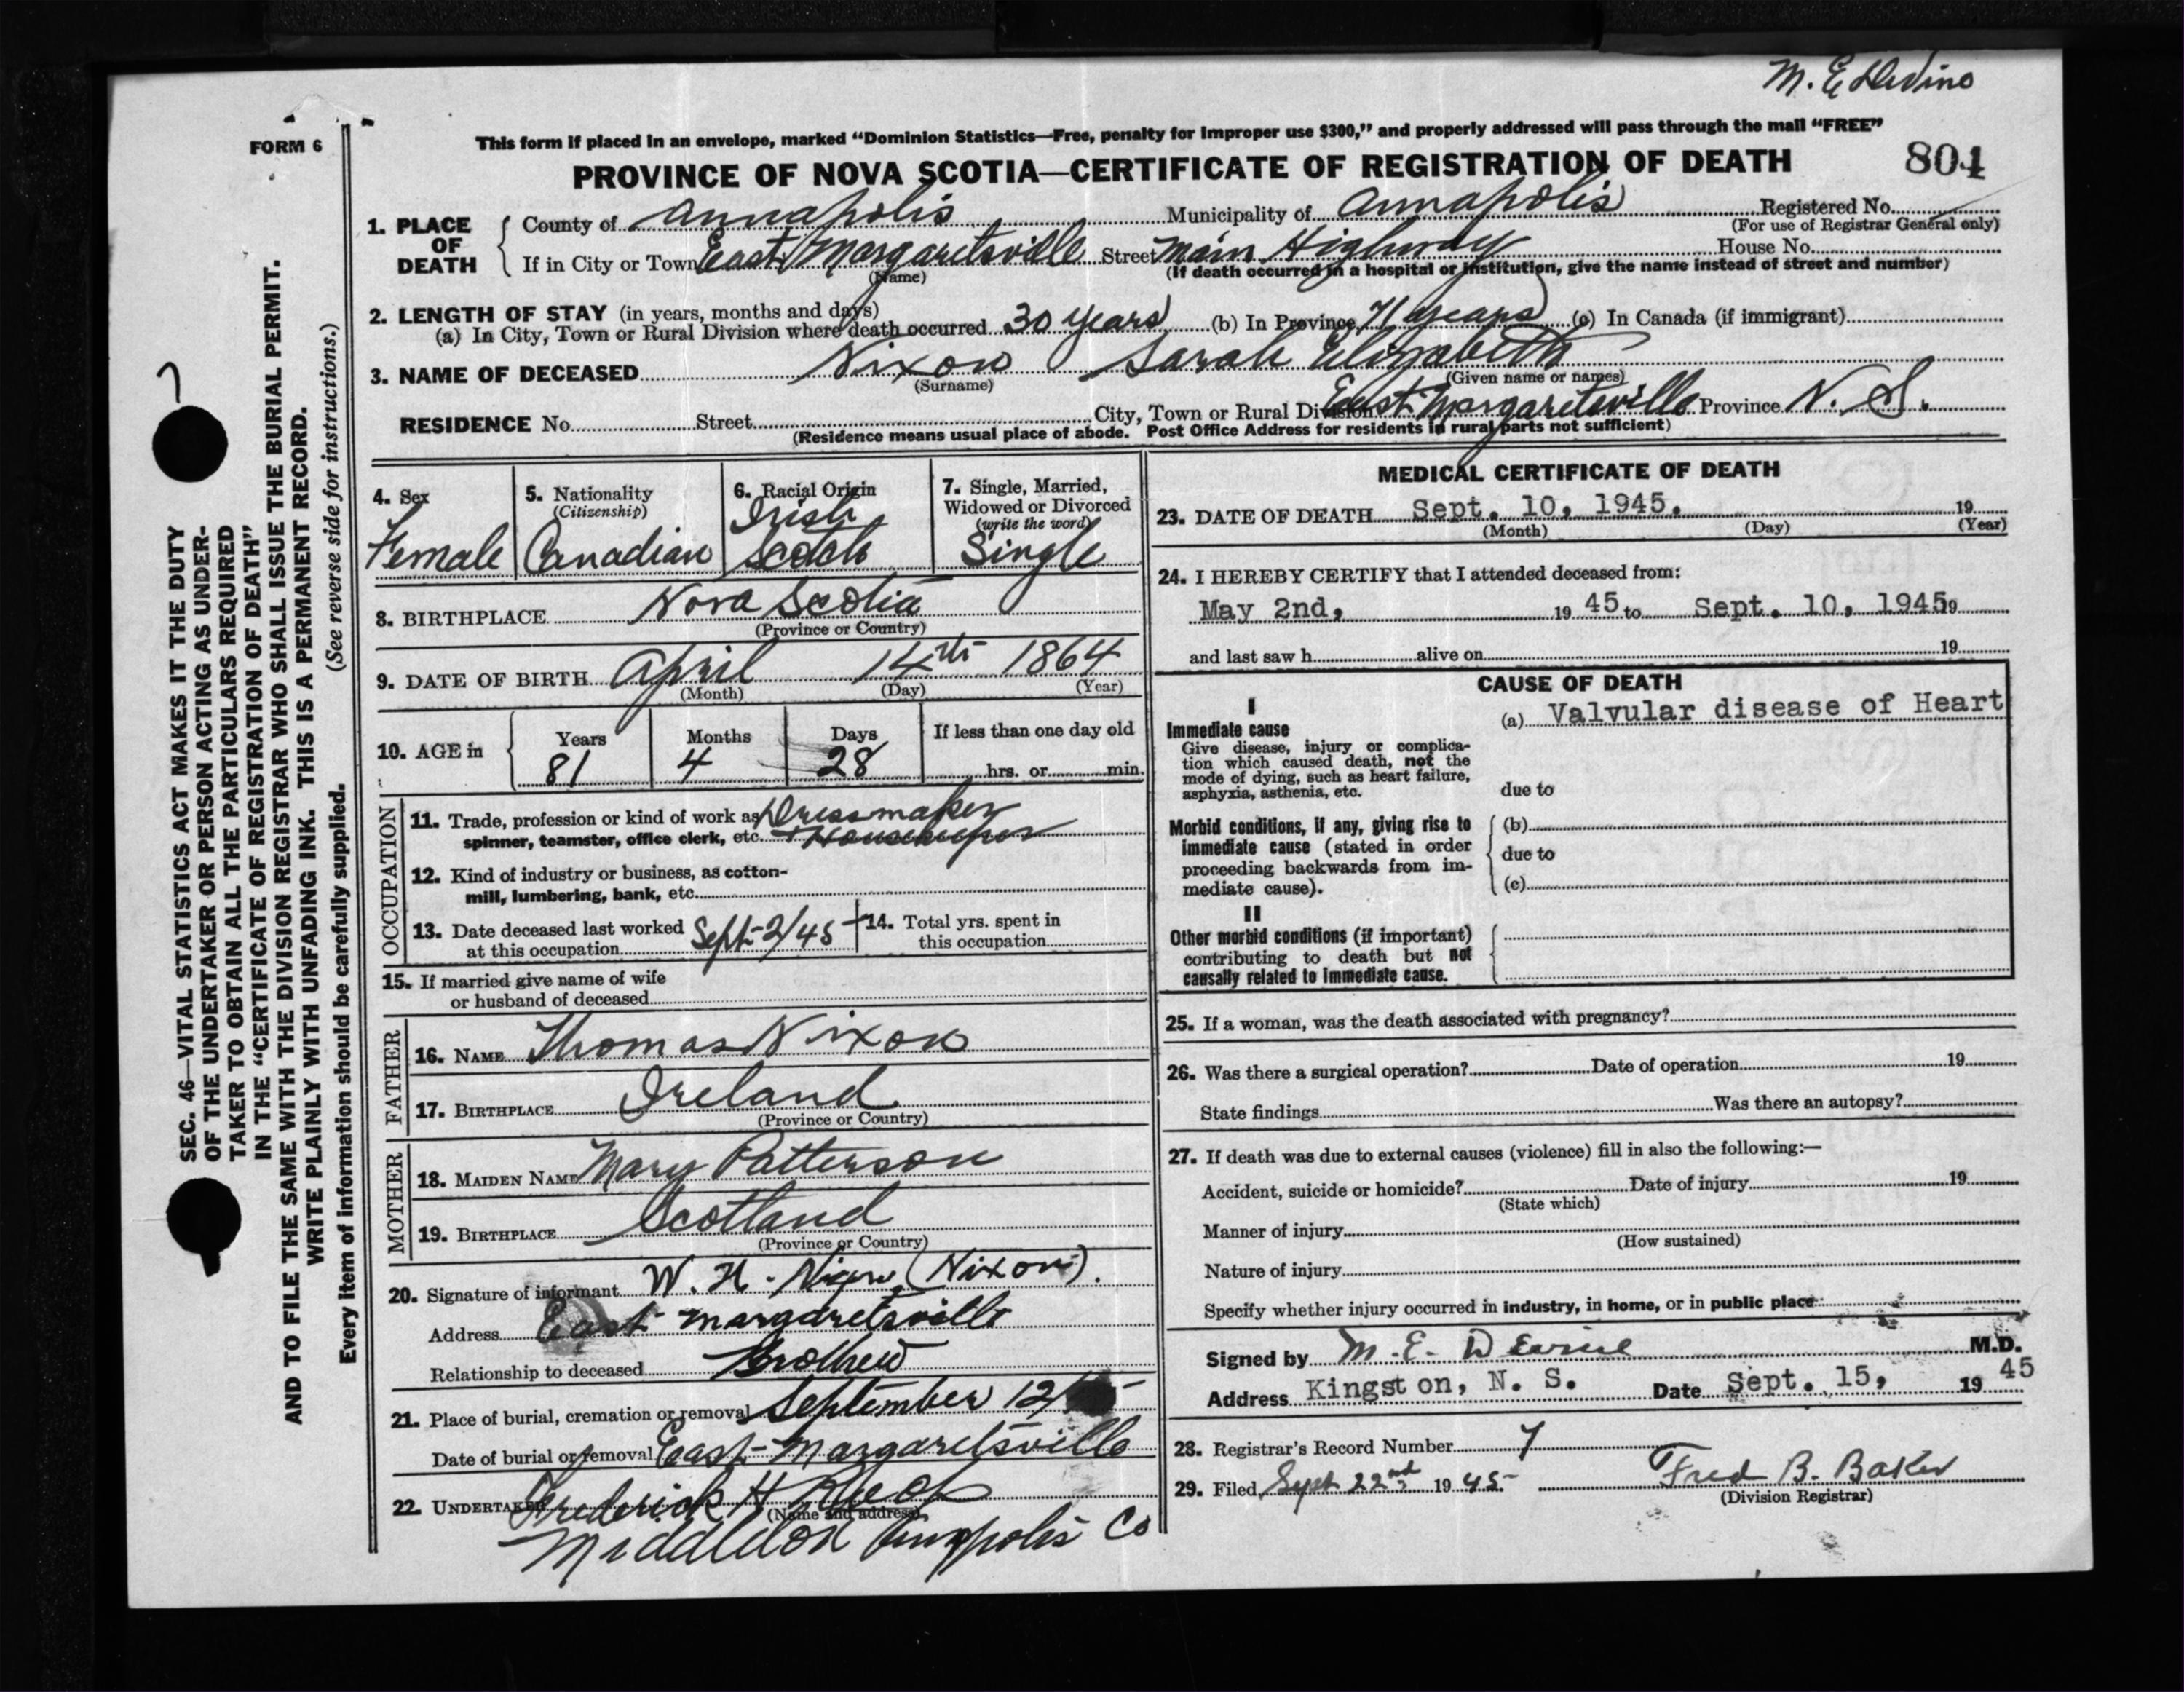 M. E. Devine
FORM 6
This form if placed in an envelope, marked "Dominion Statistics—Free, penalty for improper use $300," and properly addressed will pass through the mail "FREE"
PROVINCE OF NOVA SCOTIA—CERTIFICATE OF REGISTRATION OF DEATH
804
1. PLACE OF DEATH
County of Annapolis Municipality of Annapolis Registered No.
(For use of Registrar General only)
If in City or Town East Margaretsville Street Main Highway House No.
(Name) (If death occurred in a hospital or institution, give the name instead of street and number)
2. LENGTH OF STAY (in years, months and days)
(a) In City, Town or Rural Division where death occurred 30 years (b) In Province 71 years (c) In Canada (if immigrant)
3. NAME OF DECEASED Nixon Sarah Elizabeth
(Surname) (Given name or names)
RESIDENCE No. Street City, Town or Rural Division East Margaretsville Province N. S.
(Residence means usual place of abode. Post Office Address for residents in rural parts not sufficient)
4. Sex
Female
5. Nationality
(Citizenship)
Canadian
6. Racial Origin
Irish
Scotch
7. Single, Married, Widowed or Divorced
(write the word)
Single
8. BIRTHPLACE Nova Scotia
(Province or Country)
9. DATE OF BIRTH April 14th 1864
(Month) (Day) (Year)
10. AGE in Years Months Days If less than one day old
81 4 28 hrs. or min.
OCCUPATION
11. Trade, profession or kind of work as Dressmaker
spinner, teamster, office clerk, etc. + Housekeeper
12. Kind of industry or business, as cotton-
mill, lumbering, bank, etc.
13. Date deceased last worked at this occupation Sept 2/45
14. Total yrs. spent in this occupation
15. If married give name of wife
or husband of deceased
FATHER
16. NAME Thomas Nixon
17. BIRTHPLACE Ireland
(Province or Country)
MOTHER
18. MAIDEN NAME Mary Patterson
19. BIRTHPLACE Scotland
(Province or Country)
20. Signature of informant W. H. Nixon (Nixon).
Address East Margaretsville
Relationship to deceased Brother
21. Place of burial, cremation or removal September 12
Date of burial or removal East Margaretsville
22. UNDERTAKER Frederick H
(Name and address)
Middleton Annapolis Co
MEDICAL CERTIFICATE OF DEATH
23. DATE OF DEATH Sept. 10, 1945. 19
(Month) (Day) (Year)
24. I HEREBY CERTIFY that I attended deceased from:
May 2nd, 19 45 to Sept. 10, 1945 19
and last saw h alive on 19
CAUSE OF DEATH
I
Immediate cause
Give disease, injury or complica-
tion which caused death, not the
mode of dying, such as heart failure,
asphyxia, asthenia, etc.
(a) Valvular disease of Heart
due to
Morbid conditions, if any, giving rise to
immediate cause (stated in order
proceeding backwards from im-
mediate cause).
(b)
due to
(c)
II
Other morbid conditions (if important)
contributing to death but not
causally related to immediate cause.
25. If a woman, was the death associated with pregnancy?
26. Was there a surgical operation? Date of operation 19
State findings Was there an autopsy?
27. If death was due to external causes (violence) fill in also the following:—
Accident, suicide or homicide? Date of injury 19
(State which)
Manner of injury
(How sustained)
Nature of injury
Specify whether injury occurred in industry, in home, or in public place
Signed by M. E. Devine M.D.
Address Kingston, N. S. Date Sept. 15, 19 45
28. Registrar's Record Number 7
29. Filed Sept 22nd 19 45 Fred B. Baker
(Division Registrar)
SEC. 46—VITAL STATISTICS ACT MAKES IT THE DUTY
OF THE UNDERTAKER OR PERSON ACTING AS UNDER-
TAKER TO OBTAIN ALL THE PARTICULARS REQUIRED
IN THE "CERTIFICATE OF REGISTRATION OF DEATH"
AND TO FILE THE SAME WITH THE DIVISION REGISTRAR WHO SHALL ISSUE THE BURIAL PERMIT.
WRITE PLAINLY WITH UNFADING INK. THIS IS A PERMANENT RECORD.
Every item of information should be carefully supplied. (See reverse side for instructions.)